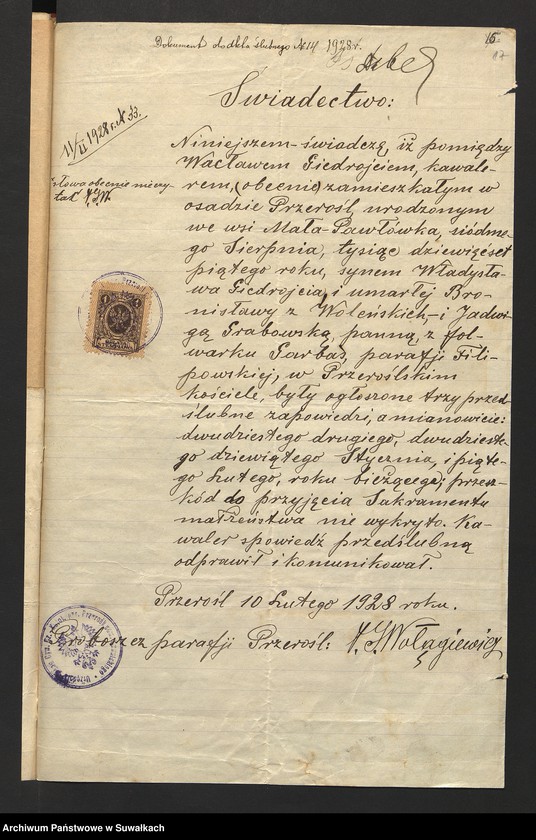 15.
17
Dokument do aktu ślubnego № 14 1928 r.
Świadectwo:
11/II 1928 r. № 33.
Niniejszem świadczę, iż pomiędzy
Wacławem Giedrojciem, kawale-
rem, (obecnie) zamieszkałym w
słowa obecnie niewy-
tak
osadzie Przerośl, urodzonym
we wsi Mała-Pawłówka, siódme-
go Sierpnia, tysiąc dziewięćset
piątego roku, synem Władysła-
wa Giedrojcia, i umarłej Bro-
nisławy z Woleńskich, i Jadwi-
gą Grabowską, panną, z fol-
warku Garbaś, parafji Fili-
powskiej, w Przeroślskim
kościele, były ogłoszone trzy przed-
ślubne zapowiedzi, a mianowicie:
dwudziestego drugiego, dwudzieste-
go dziewiątego Stycznia, i piąte-
go Lutego, roku bieżącego; przesz-
kód do przyjęcia Sakramentu
małżeństwa nie wykryto. Ka-
waler spowiedź przedślubną
odprawił i komunikował.
Przerośl 10 Lutego 1928 roku.
Proboszcz parafji Przerośl: Wołągiewicz
Archiwum Państwowe w Suwałkach